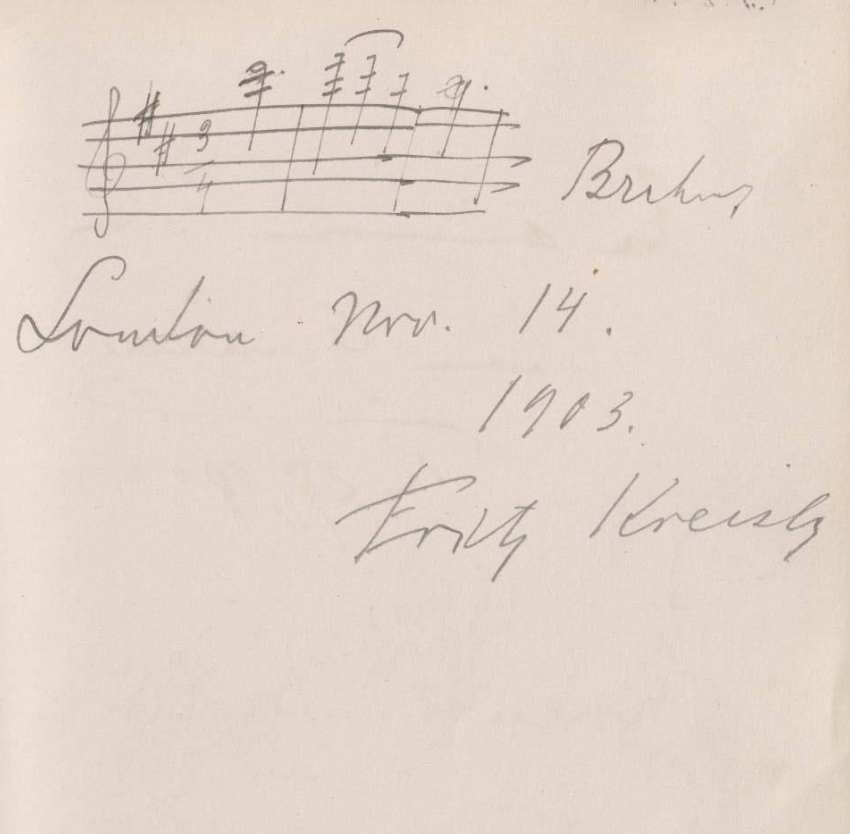 3
4
Brahms
London Nov. 14.
1903.
Fritz Kreisler